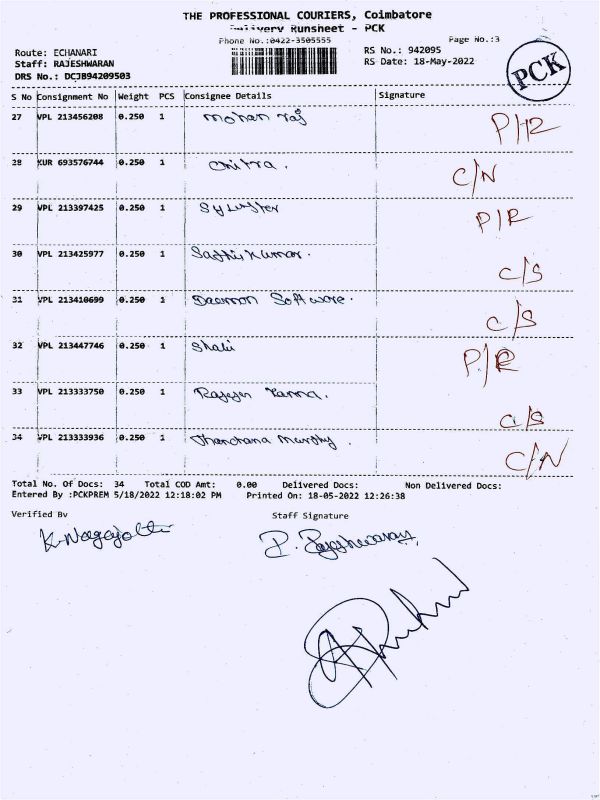 THE PROFESSIONAL COURIERS, Coimbatore
Delivery Runsheet - PCK
Phone No.:0422-3505555 Page No.:3
Route: ECHANARI RS No.: 942095
Staff: RAJESHWARAN RS Date: 18-May-2022
DRS No.: DCJB94209503
PCK
S No Consignment No Weight PCS Consignee Details Signature
27 VPL 213456208 0.250 1 Mohan raj P/R
28 KUR 693576744 0.250 1 Chitra. C/N
29 VPL 213397425 0.250 1 Sylvster P/R
30 VPL 213425977 0.250 1 Sathis Kumar. C/S
31 VPL 213410699 0.250 1 Daemon Software. C/S
32 VPL 213447746 0.250 1 Shali P/R
33 VPL 213333750 0.250 1 C/S
34 VPL 213333936 0.250 1 C/N
Total No. Of Docs: 34 Total COD Amt: 0.00 Delivered Docs: Non Delivered Docs:
Entered By :PCKPREM 5/18/2022 12:18:02 PM Printed On: 18-05-2022 12:26:38
Verified By Staff Signature
P. Rajeshwaran